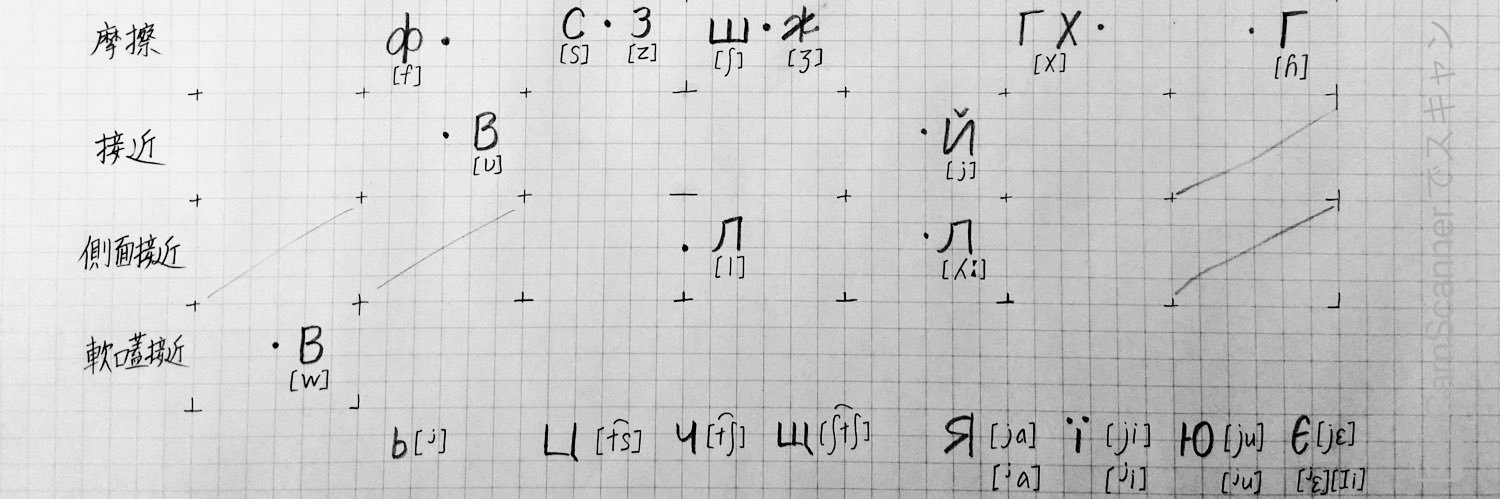 摩擦 ф · С · З Ш · Ж Г Х · · Г
[f] [s] [z] [ʃ] [ʒ] [x] [ɦ]
接近 · В · Й
[ʋ] [j]
側面接近 · Л · Л
[l] [ʎː]
軟口蓋接近 · В
[w]
ь [ʲ] Ц [t͡s] Ч [t͡ʃ] Щ [ʃt͡ʃ] Я [ja] Ї [ji] Ю [ju] Є [jɛ]
[ʲa] [ʲi] [ʲu] [ʲɛ]
CamScannerでスキャン